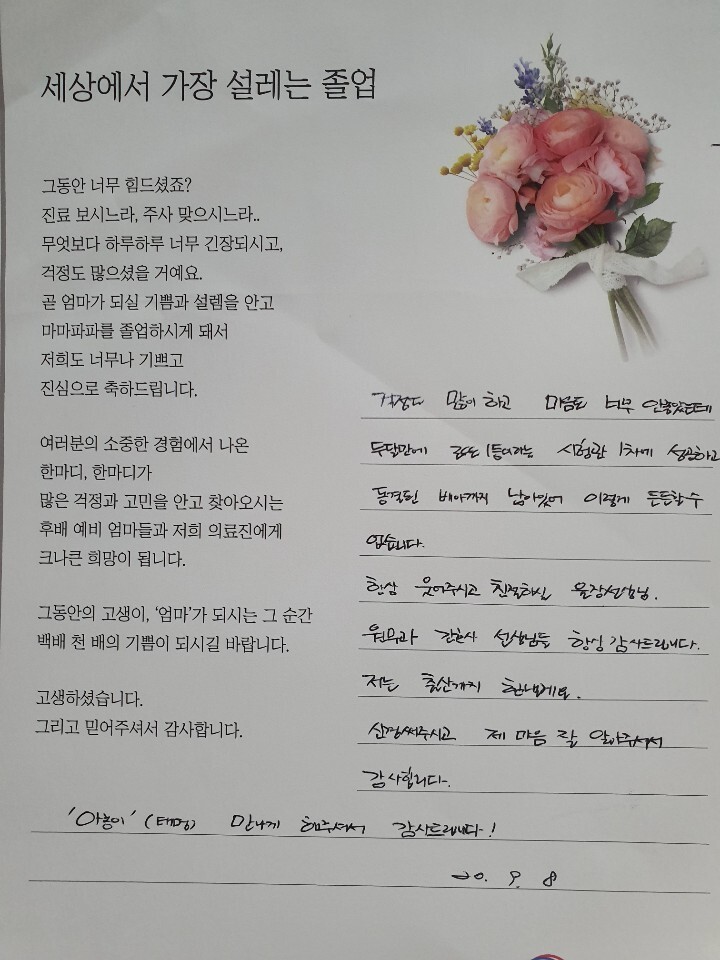 세상에서 가장 설레는 졸업
그동안 너무 힘드셨죠?
진료 보시느라, 주사 맞으시느라..
무엇보다 하루하루 너무 긴장되시고,
걱정도 많으셨을 거예요.
곧 엄마가 되실 기쁨과 설렘을 안고
마마파파를 졸업하시게 돼서
저희도 너무나 기쁘고
진심으로 축하드립니다.
여러분의 소중한 경험에서 나온
한마디, 한마디가
많은 걱정과 고민을 안고 찾아오시는
후배 예비 엄마들과 저희 의료진에게
크나큰 희망이 됩니다.
그동안의 고생이, '엄마'가 되시는 그 순간
백배 천 배의 기쁨이 되시길 바랍니다.
고생하셨습니다.
그리고 믿어주셔서 감사합니다.
걱정도 많이 하고 마음도 너무 안좋았는데
두달만에 로또 1등이라는 시험관 1차에 성공하고
동결된 배아까지 남아있어 이렇게 든든할수
없습니다.
항상 웃어주시고 친절하신 원장선생님.
원무과 간호사 선생님들 항상 감사드립니다.
저는 출산까지 힘낼게요.
신경써주시고 제 마음 잘 알아주셔서
감사합니다.
(태명) 만나게 해주셔서 감사드립니다!
20. 9. 8